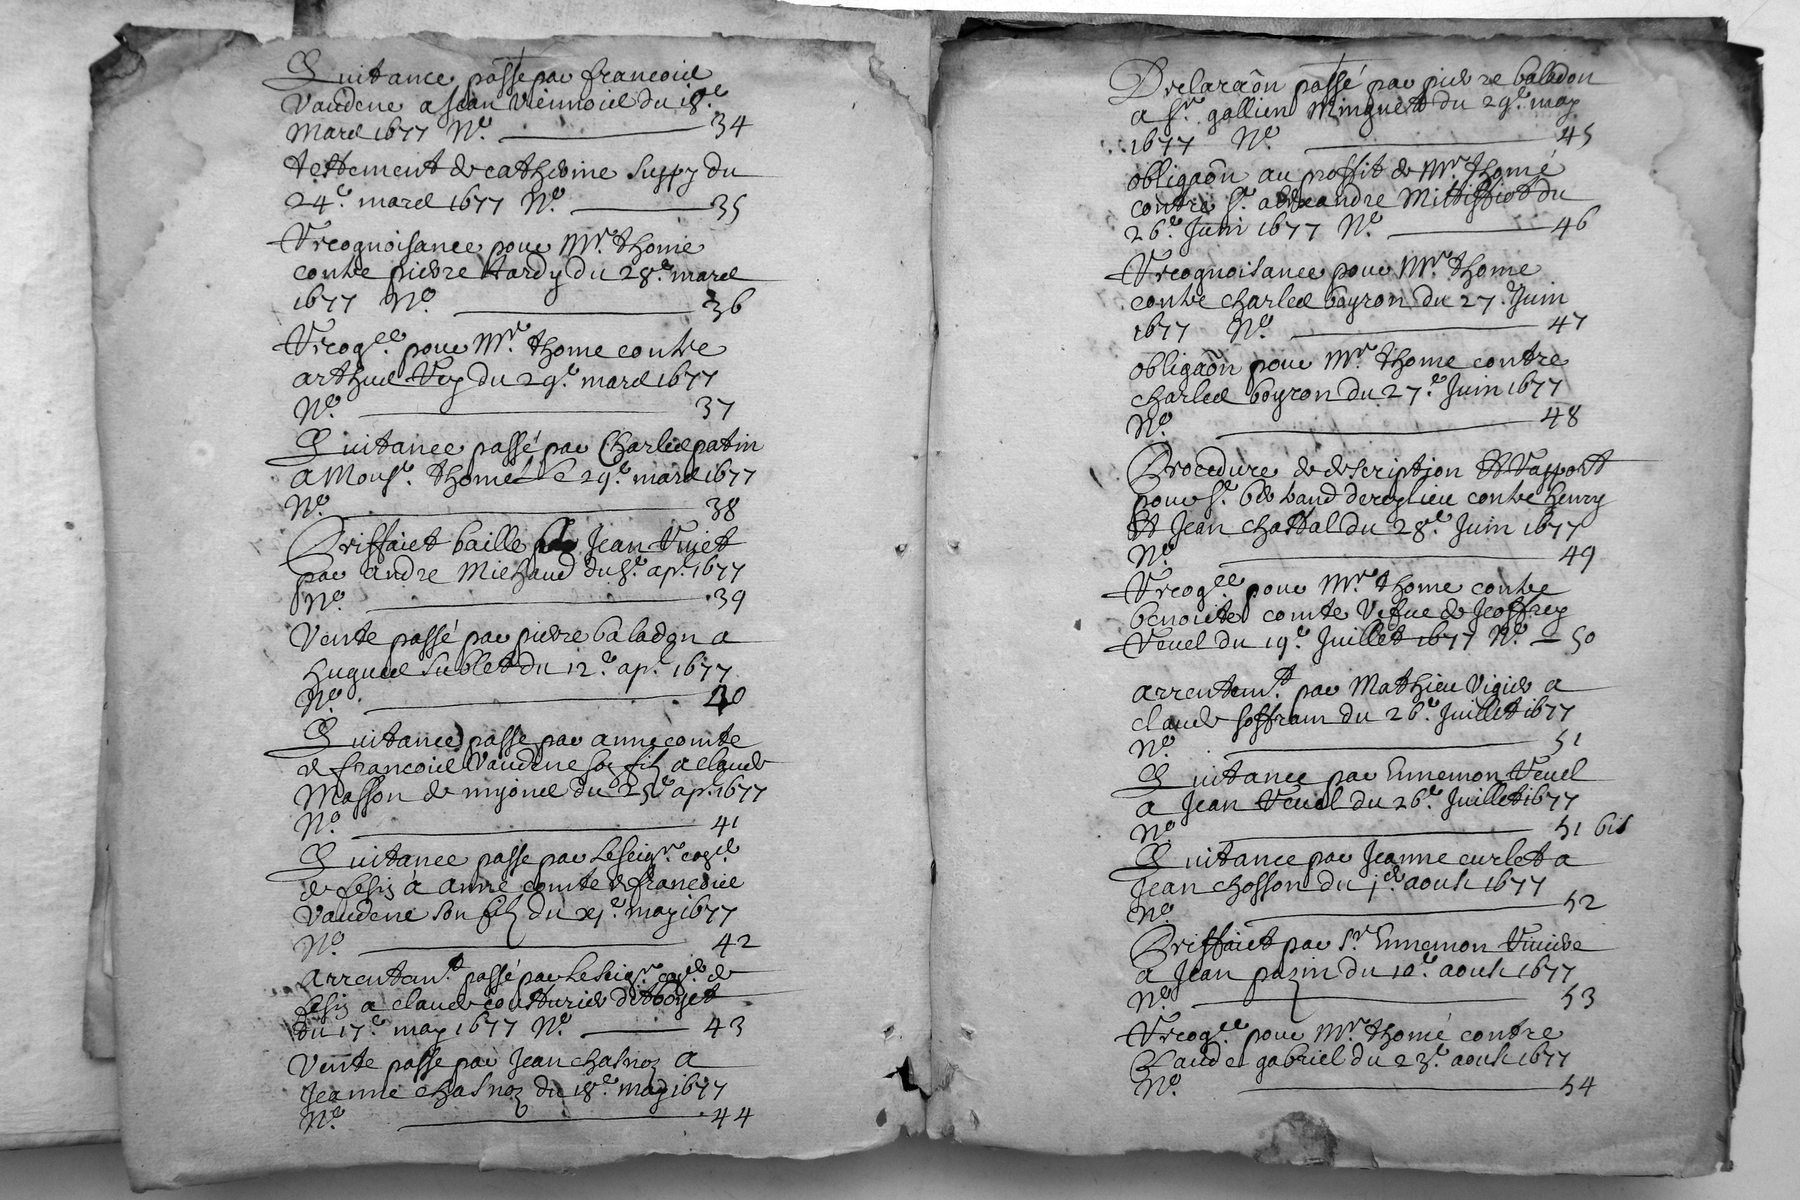 Quitance passé par francois
vaudene a Jean viennois du 18e
Mars 1677 No. 34
testement de catherine suppy du
24e mars 1677 No. 35
Recognoisance pour Mr. thome
contre pierre hardy du 28e mars
1677 No. 36
Recog.ce pour Mr. thome contre
arthus Rey du 29e mars 1677
No. 37
Quitance passé par Charles patin
a Monsr. thome le 29e mars 1677
No. 38
Priffaict baille Jean Vuiet
par andre Michaud du 8e ap. 1677
No. 39
Vente passé par pierre baladon a
hugues sublet du 12e ap. 1677
No. 40
Quitance passe par anne comte
& francois vaudene son filz a claude
Masson de mijonel du 25e ap. 1677
No. 41
Quitance passe par le seigr.
de Lesis a anne comte & francois
vaudene son filz du xj.e may 1677
No. 42
arrentem.t passé par le seigr. de
Lesis a claude cousturier
du 17e may 1677 No. 43
Vente passe par Jean chasnoz a
Jeanne chasnoz du 18e may 1677
No. 44
Declaraôn passé par pierre baladon
a sr. gallien Minguett du 29e may
1677 No. 45
obligaôn au proffit de Mr. thomé
contre sr. alexandre Mittiffiot du
26e Juin 1677 No. 46
Recognoisance pour Mr. thome
contre charles boyron du 27e Juin
1677 No. 47
obligaôn pour Mr. thome contre
charles boyron du 27e Juin 1677
No. 48
Procedure de description Et Rapport
pour sr. bertrand contre henry
Et Jean chastal du 28e Juin 1677
No. 49
Recog.ce pour Mr. thome contre
benoite comte vefue de Jeoffrey
Reuel du 19e Juillet 1677 No. 50
arrentem.t par Mathieu vigier a
claude soffram du 26e Juillet 1677
No. 51
Quitance par Ennemon Reuel
a Jean Reuol du 26e Juillet 1677
No. 51 bis
Quitance par Jeanne curlet a
Jean chosson du j.er aoust 1677
No. 52
Priffaict par sr. Ennemon Riuiere
a Jean pazin du 10e aoust 1677
No. 53
Recog.ce pour Mr. thomé contre
Claude gabriel du 23e aoust 1677
No. 54